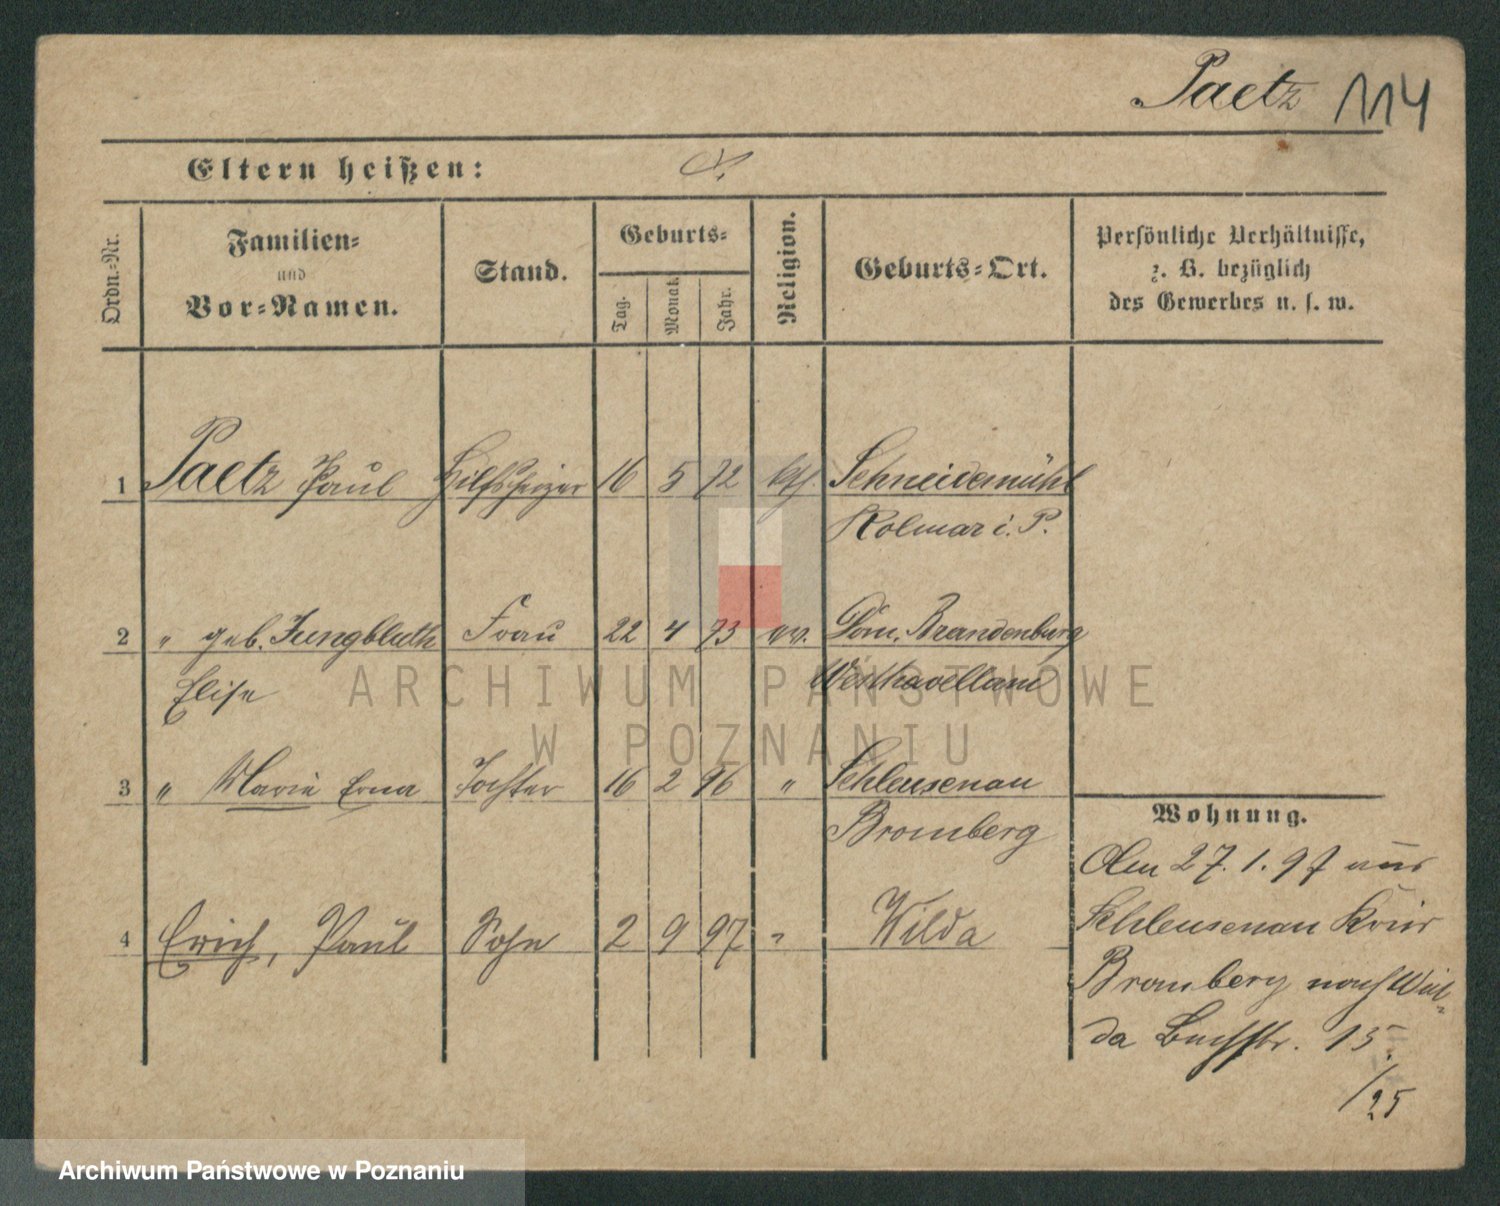 Paetz 114
Eltern heißen:
Ordn.-Nr.
Familien-
und
Vor-Namen.
Stand.
Geburts-
Tag.
Monat.
Jahr.
Religion.
Geburts-Ort.
Persönliche Verhältnisse,
z. B. bezüglich
des Gewerbes u. s. w.
1 Paetz Paul Hilfsheizer 16 5 72 kth. Schneidemühl
Kolmar i. P.
2 " geb. Jungbluth Frau 22 4 73 ev. Dom. Brandenburg
Elise Westhavelland
3 " Marie Erna Tochter 16 2 96 " Schleusenau
Bromberg
4 Erich, Paul Sohn 2 9 97 " Wilda
Wohnung.
Am 27.1.97 aus
Schleusenau Kreis
Bromberg nach Wil-
da Bachstr. 15.
/25
ARCHIWUM PAŃSTWOWE
W POZNANIU
Archiwum Państwowe w Poznaniu